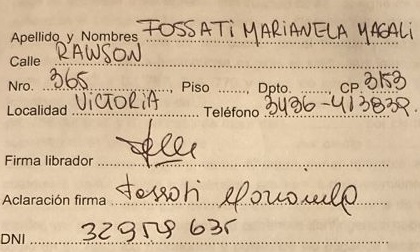 Apellido y Nombres FOSSATI MARIANELA MAGALI
Calle RAWSON
Nro. 365, Piso ......, Dpto. ......, CP. 3153
Localidad VICTORIA Teléfono 3436-413839.
Firma librador
Aclaración firma Fossati Marianela
DNI 32959 635